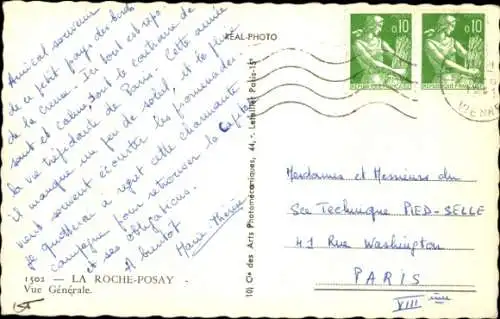 Amical souvenir
de ce petit pays des bords
de la Creuse. Ici tout est repo-
sant et calme, tout le contraire de
la vie trépidante de Paris. Cette année
il manque un peu de soleil, et la pluie
vient souvent écourter les promenades.
Je quitterai à regret cette charmante
campagne pour retrouver la Capitale
et ses obligations.
A bientôt
Marie Thérèse
1502 - LA ROCHE-POSAY
Vue Générale.
RÉAL-PHOTO
10) Cie des Arts Photomécaniques, 44, - Letellier Paris-15e
0,10
0,10
VIENNE
Mesdames et Messieurs du
Sce Technique PIED-SELLE
41 Rue Washington
PARIS
VIIIème